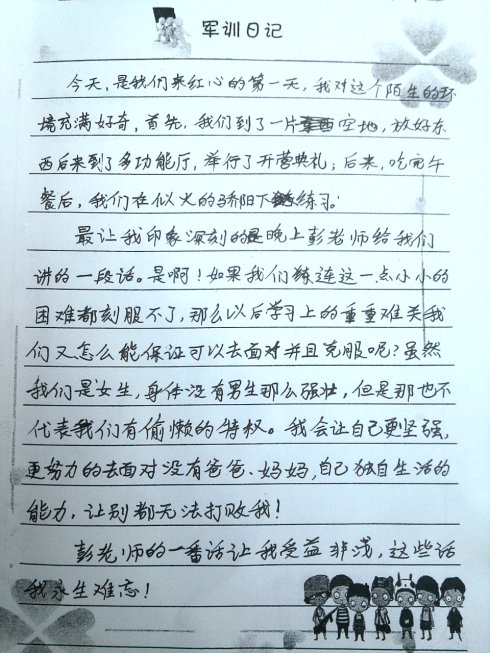 军训日记
今天,是我们来红心的第一天,我对这个陌生的环
境充满好奇,首先,我们到了一片空地,放好东
西后来到了多功能厅,举行了开营典礼;后来,吃完午
餐后,我们在似火的骄阳下练习。
最让我印象深刻的是晚上彭老师给我们
讲的一段话。是啊!如果我们连这一点小小的
困难都刻服不了,那么以后学习上的重重难关我
们又怎么能保证可以去面对并且克服呢?虽然
我们是女生,身体没有男生那么强壮,但是那也不
代表我们有偷懒的特权。我会让自己更坚强,
更努力的去面对没有爸爸、妈妈,自己独自生活的
能力,让别都无法打败我!
彭老师的一番话让我受益非浅,这些话
我永生难忘!